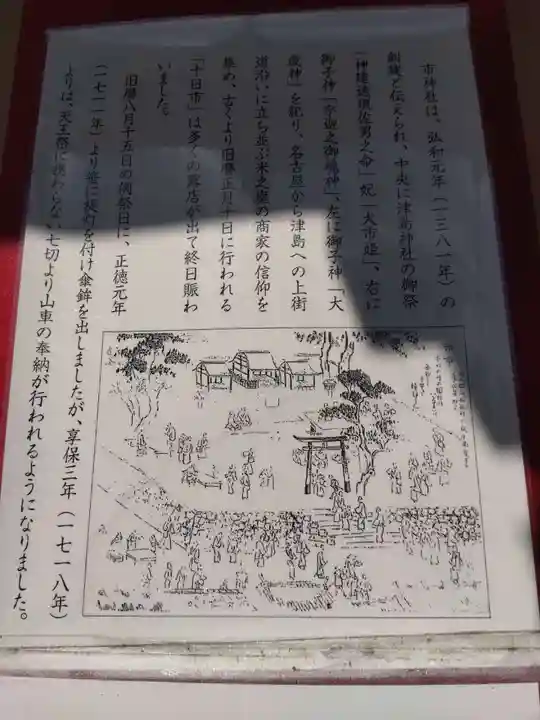 市神社は、弘和元年(一三八一年)の
創建と伝えられ、中央に津島神社の御祭
神「建速須佐男之命」妃「大市姫」、右に
御子神「宗迦之御魂神」、左に御子神「大
歳神」を祀り、名古屋から津島への上街
道沿いに立ち並ぶ米之座の商家の信仰を
集め、古くより旧暦正月十日に行われる
「十日市」は多くの露店が出て終日賑わ
いました。
旧暦八月十五日の例祭日に、正徳元年
(一七一一年)より笹に提灯を付け傘鉾を出しましたが、享保三年(一七一八年)
よりは、天王祭に携わらない七切より山車の奉納が行われるようになりました。